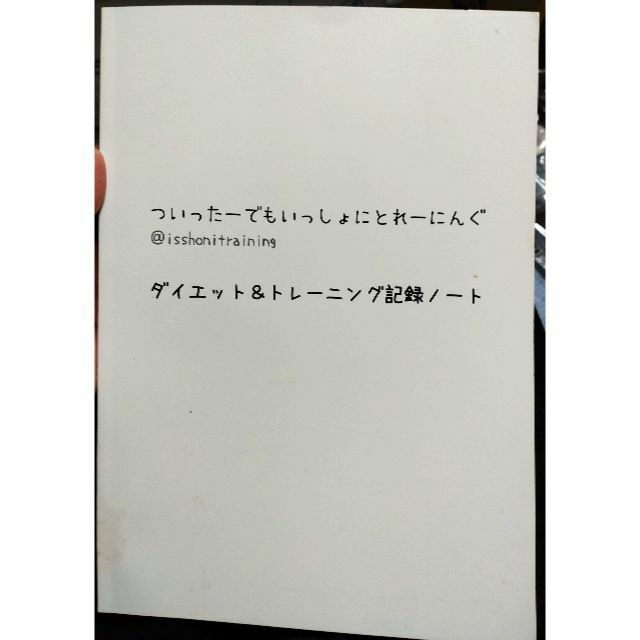 ついったーでもいっしょにとれーにんぐ
@isshonitraining
ダイエット＆トレーニング記録ノート